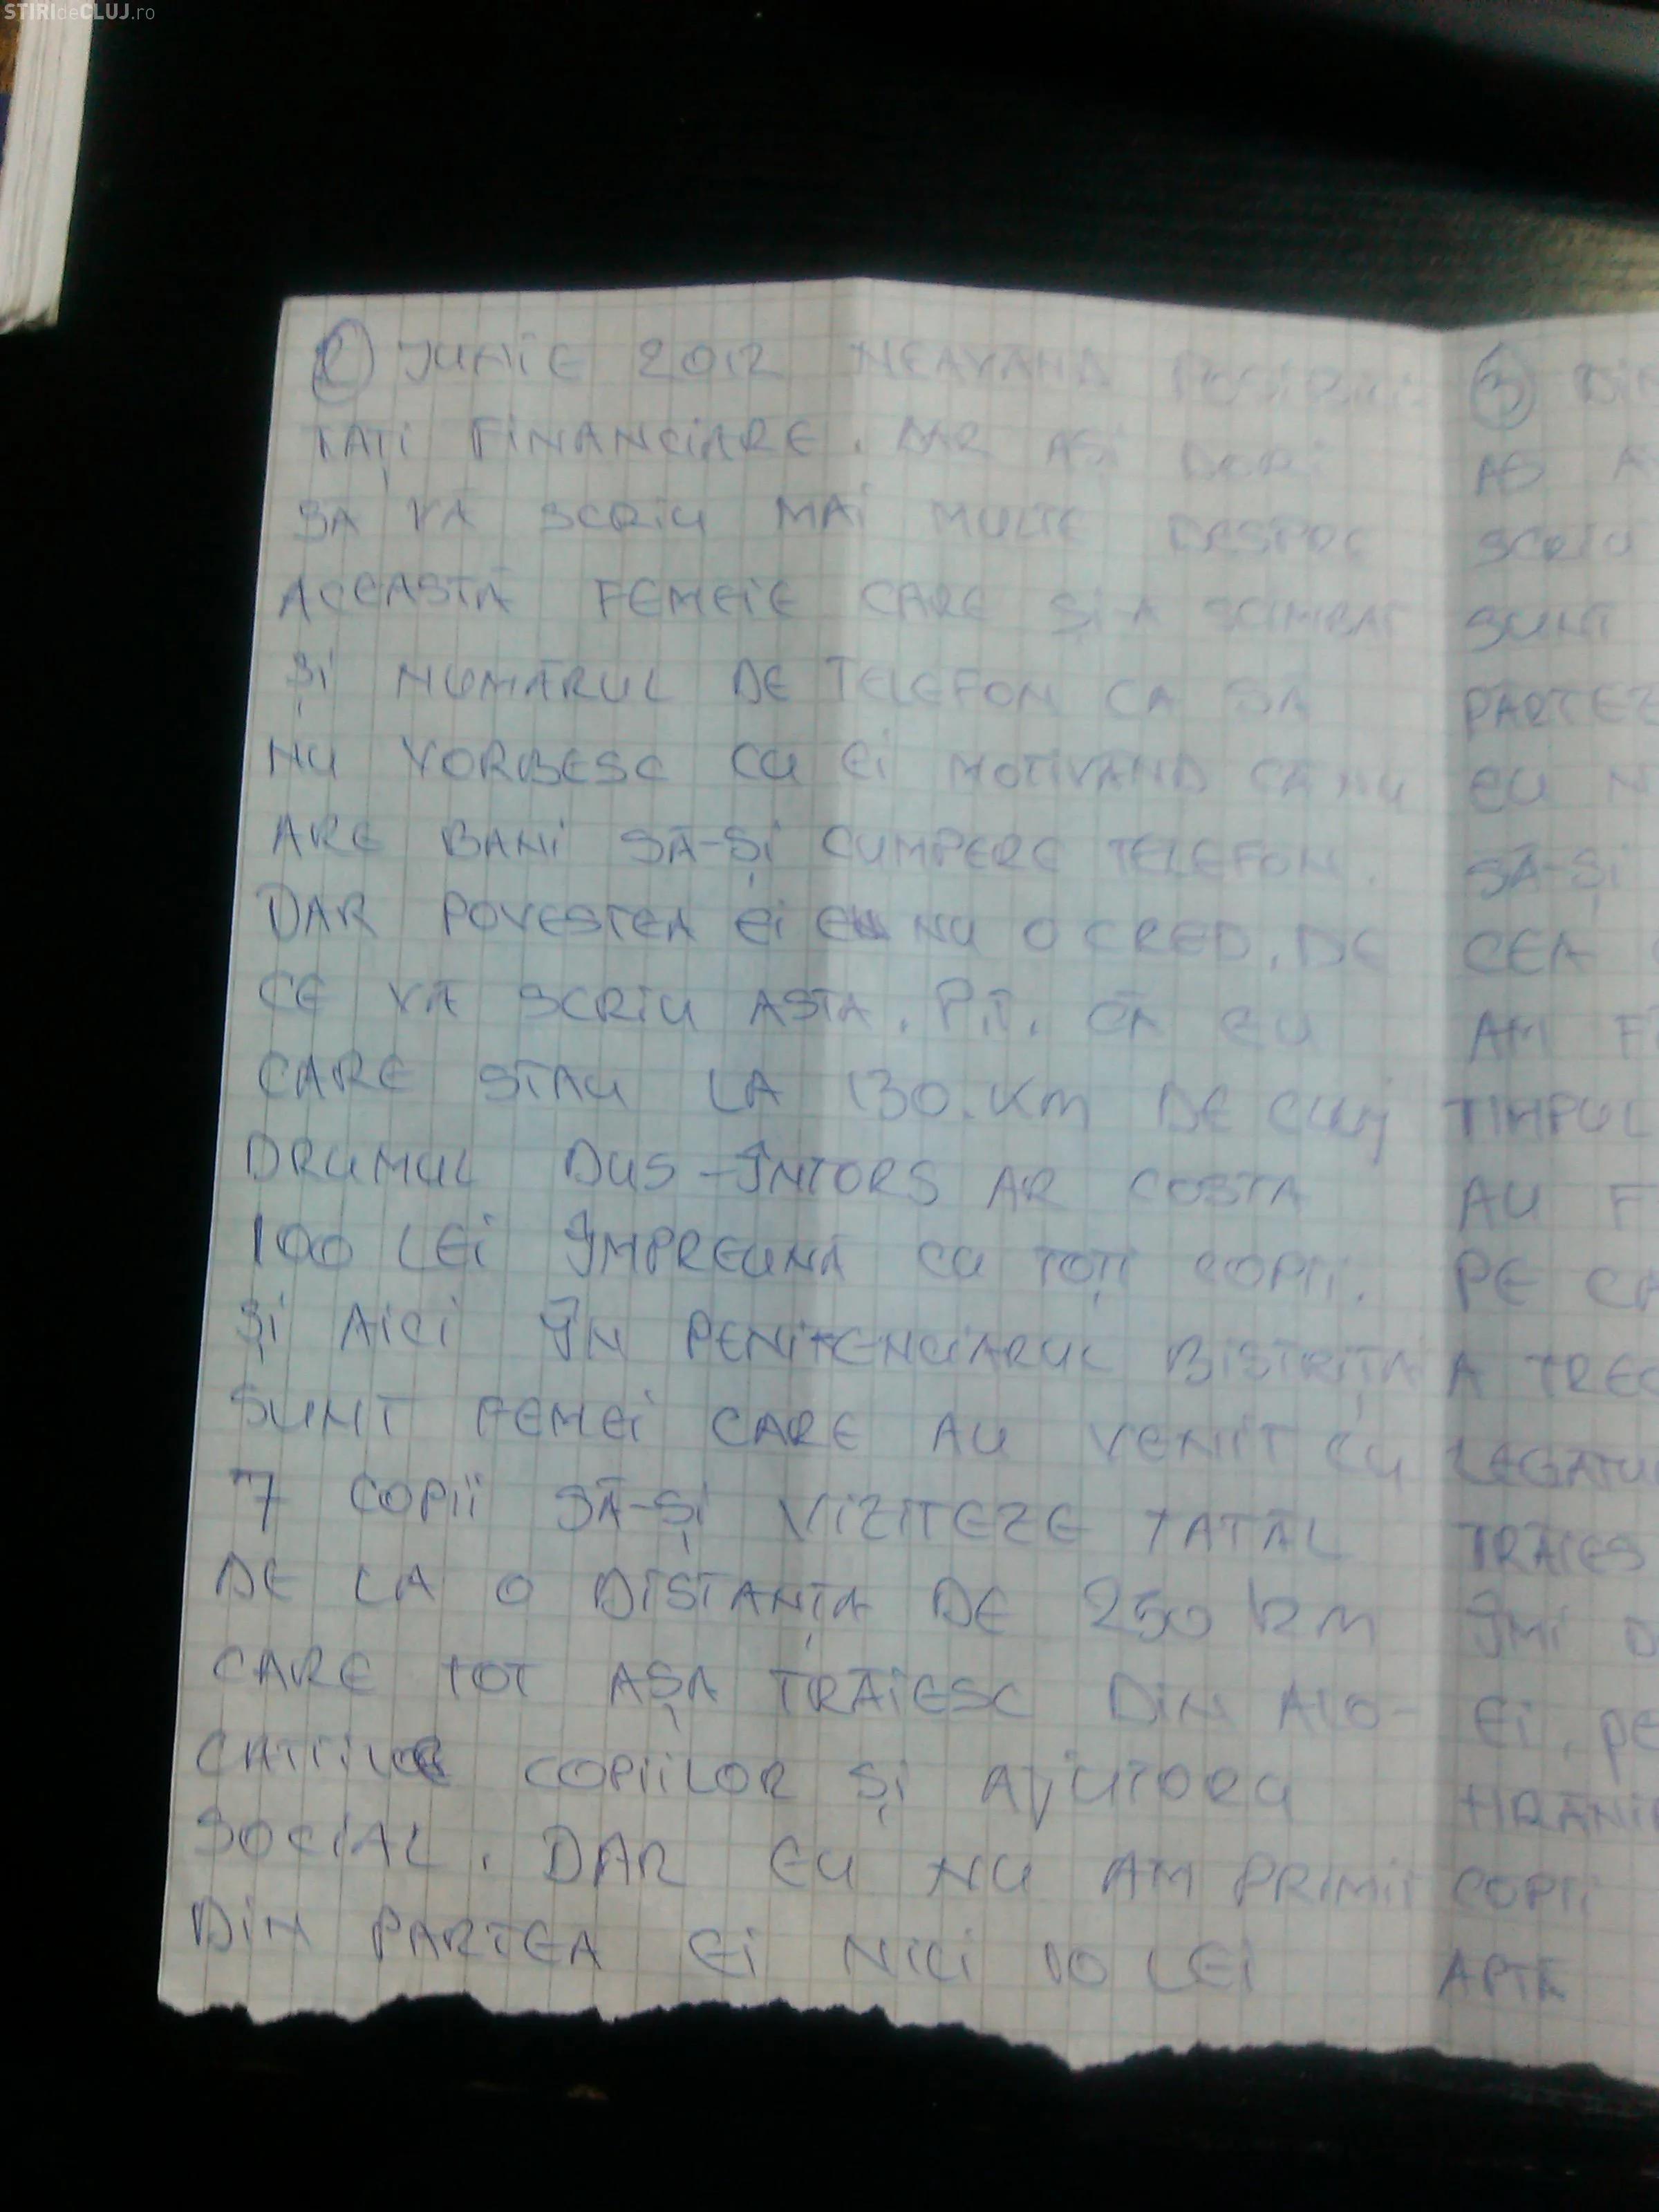 STIRIdeCLUJ.ro
② IUNIE 2012 NEAVAND POSIBILI
TAȚI FINANCIARE. DAR AȘI DORI
SĂ VĂ SCRIU MAI MULTE DESPRE
ACEASTĂ FEMEIE CARE ȘI-A SCIMBAT
ȘI NUMĂRUL DE TELEFON CA SĂ
NU VORBESC CU EI MOTIVÂND CĂ NU
ARE BANI SĂ-ȘI CUMPERE TELEFON.
DAR POVESTEA EI EU NU O CRED. DE
CE VĂ SCRIU ASTA. P.T. CĂ EU
CARE STAU LA 130.KM DE CLUJ
DRUMUL DUS-ÎNTORS AR COSTA
100 LEI ÎMPREUNĂ CU TOȚI COPII.
ȘI AICI ÎN PENITENCIARUL BISTRIȚA
SUNT FEMEI CARE AU VENIT CU
7 COPII SĂ-ȘI VIZITEZE TATĂL
DE LA O DISTANȚĂ DE 250 KM
CARE TOT AȘA TRĂIESC DIN ALO-
CATIILOR COPIILOR ȘI AJUTORU
SOCIAL. DAR EU NU AM PRIMIT
DIN PARTEA EI NICI 10 LEI
③ DIN
AS A
SCRIU
SUNT
PARTEZ
EU N
SĂ-ȘI
CEA
AM F
TIMPUL
AU F
PE CA
A TREC
LEGATU
TRĂIES
ÎMI D
EI. PE
HRĂNI
COPII
APTE